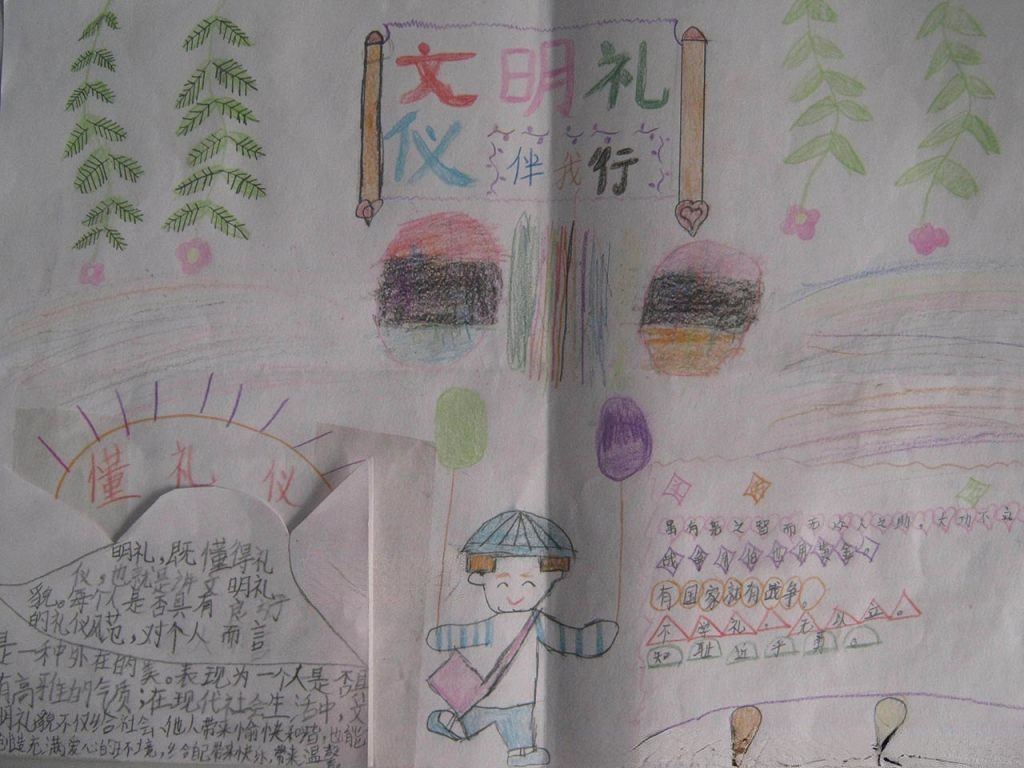 文明礼
仪伴我行
懂礼仪
明礼,既懂得礼
仪,也就是讲文明礼
貌。每个人是否具有良好
的礼仪风范,对个人而言
是一种外在的美。表现为一个人是否具
有高雅的气质;在现代社会生活中,文
明礼貌不仅给社会、他人带来愉快和谐,也能
创造充满爱心的环境,给自己带来快乐,带来温馨
虽有尧之智而无众人之助,大功不立
战争
有国家就有战争。
不学礼,无以立。
知耻近乎勇。